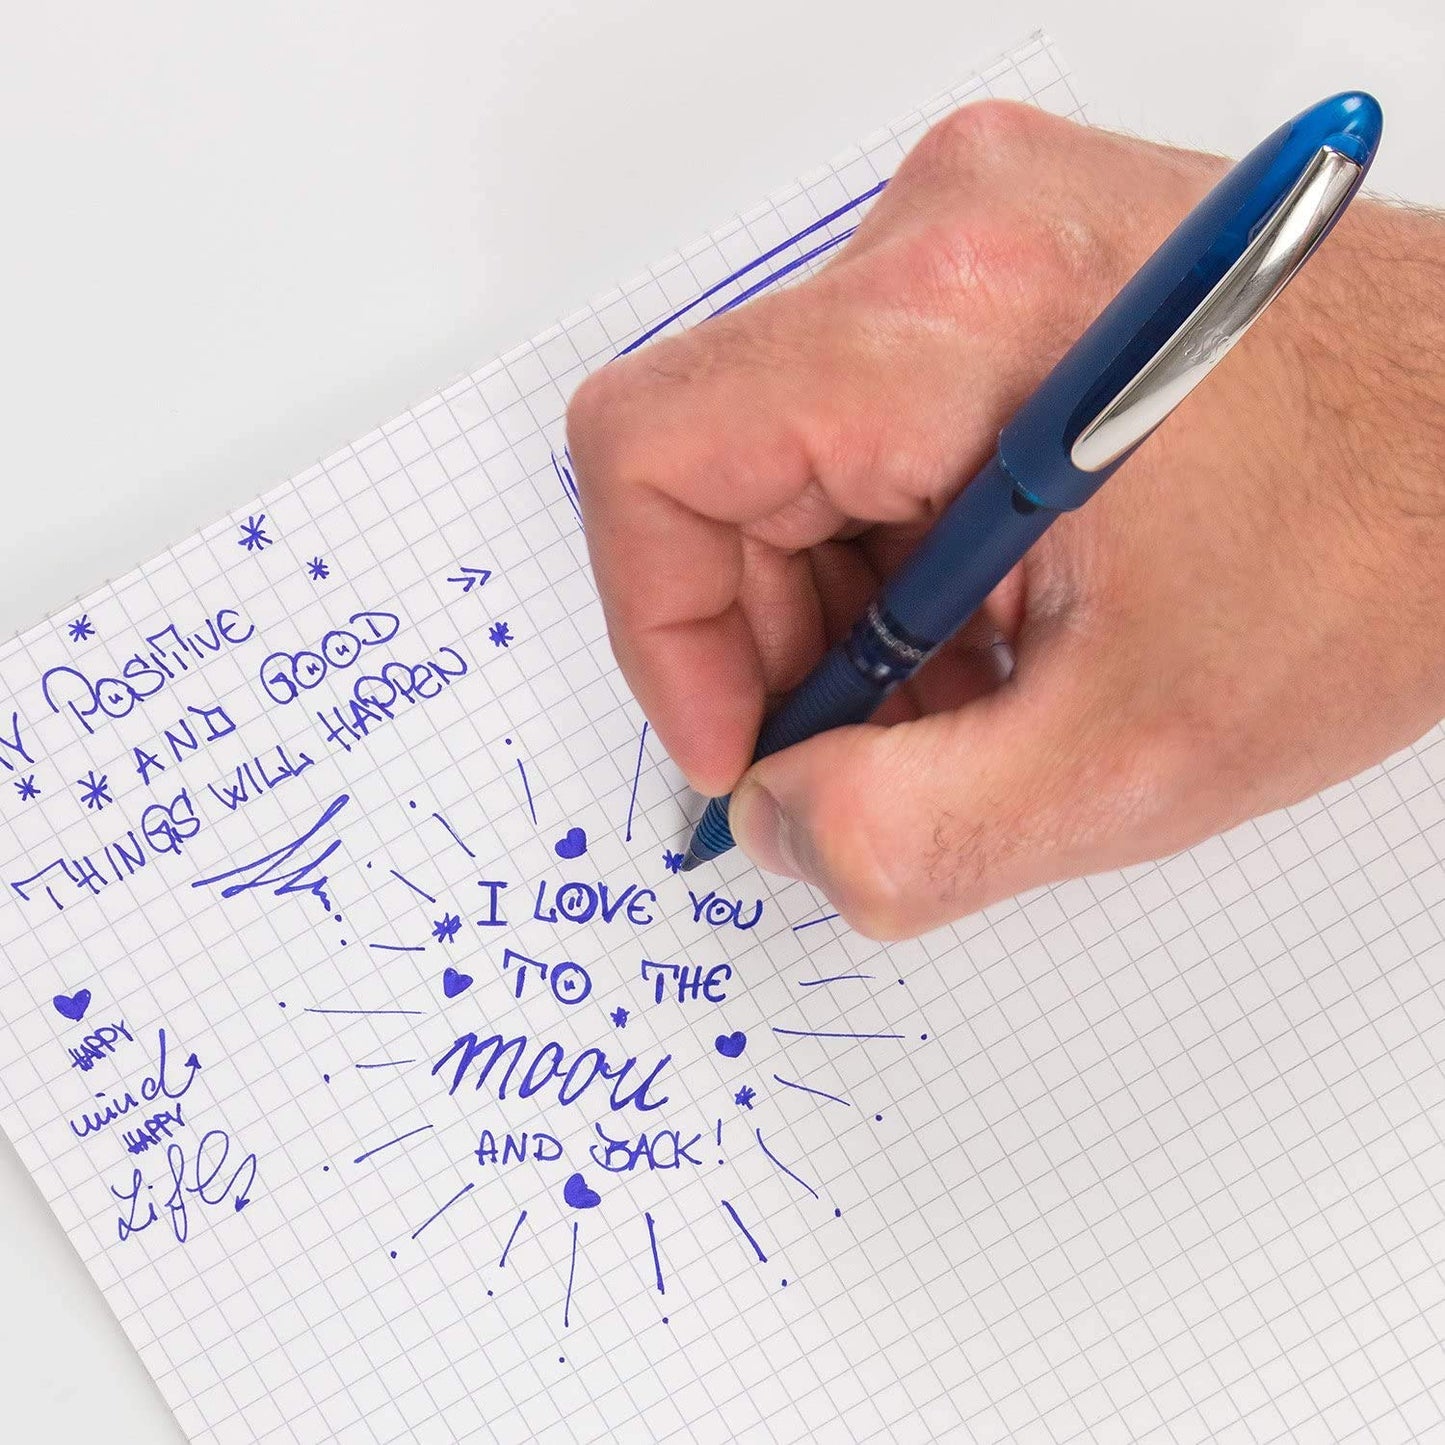 Y POSITIVE
AND GOOD
THINGS WILL HAPPEN
I LOVE YOU
TO THE
moon
AND BACK!
HAPPY
mind
HAPPY
Life